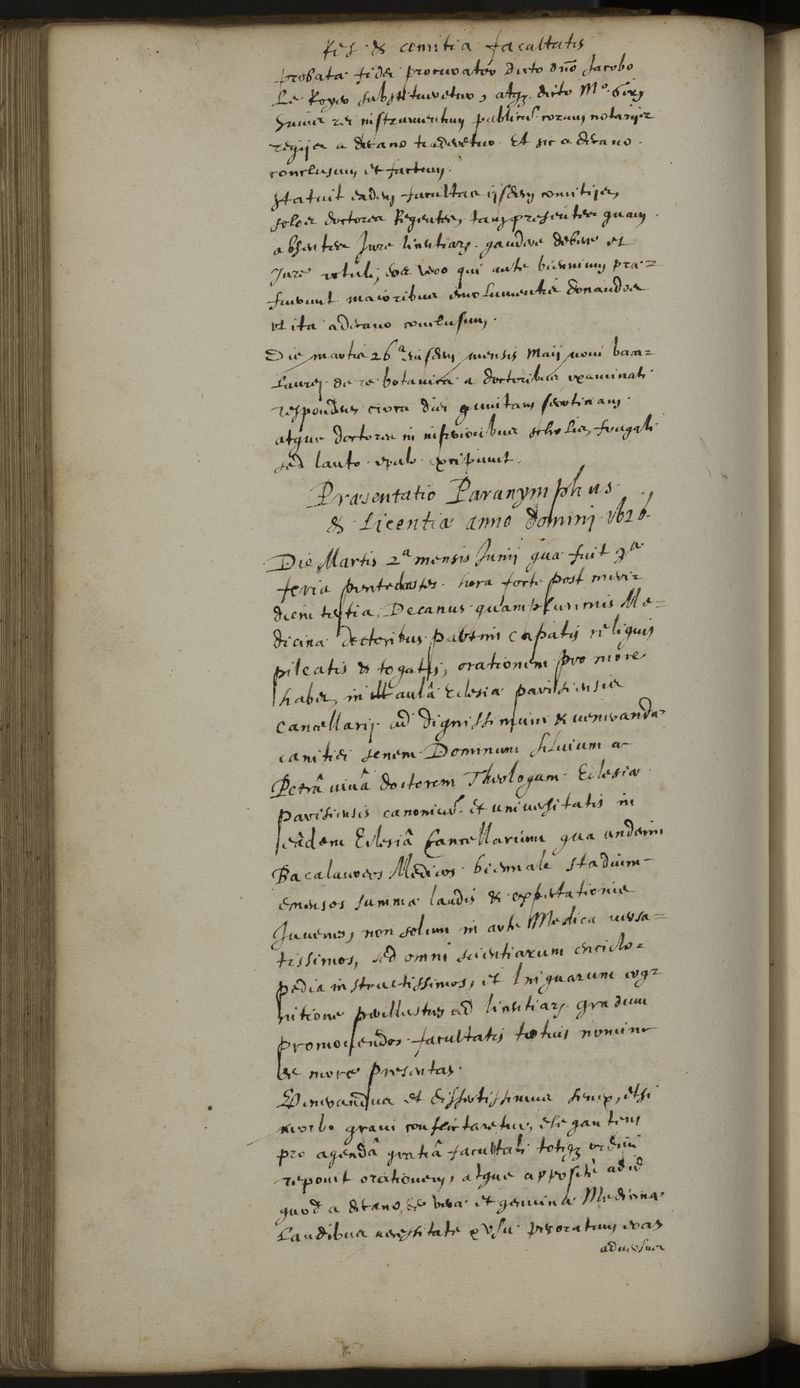 Res & comitia facultatis
probata fidei procurator dicto dno Jacobo
Le Royer substitueretur, atqz dicto Mo
instrumentum publicu coram notarijs
regijs a decano traderetur. Et sic a decano.
conclusum et factum.
Statuit eadem facultas ijsdem comitijs,
solos doctores Regentes, tam presentes quam
absentes Jure licentiarz gaudere debere et
Jure rotuli; eos vero qui ante biennium prae=
fuerunt maioribus emolumentis donandos
et ita a decano conclusum.
Die martis 26a eiusdem mensis Maij novi bacca=
laurej de re botanica a doctoribus examinati
responderunt circa diei quintam serotinam.
atque doctores in inferioribus scholis, frugali
sed lauto epulo excipiunt.
Praesentatio Paranymphus.
& Licentiae anno domini 1626.
Die Martis 2a mensis Junij quae fuit 3a
feria pentecostes. hora forte post meri=
diem tertia, Decanus quamplurimis Me=
dicinae doctoribus paternis capatis reliquis
pileatis & togatis, orationem pro more
habet, in aulâ Eclesiae parisiensis
Cancellarij ad dignissimum & venerandae
canitiei senem Dominum Silvium a
Petrâ vivâ doctorem Theologum. Eclesiae
parisiensis canonicu. et universitatis in
eâdem Eclesiâ Cancellarium qua
Bacalaureos Medicos biennale stadium
emensos summae laudis & expectationis
Juvenes, non solum in arte Medica versa=
tissimos, sed omni scientiarum enciclo=
pedia instructissimos, et linguarum cog=
nitione perillustres ad licentiarz gradum
promovendos facultatis totius nomine
de more presentas.
Venerandus et disertissimus senex, etsi
morbo gravi conflictaretur, elegantem
pro agendâ gratiâ facultati totiqz ordini
reponit orationem, atque apposite ad id
quod a decano, de vera et genuina Medicinae
Laudibus necessitate & usu peroratum erat
adversus